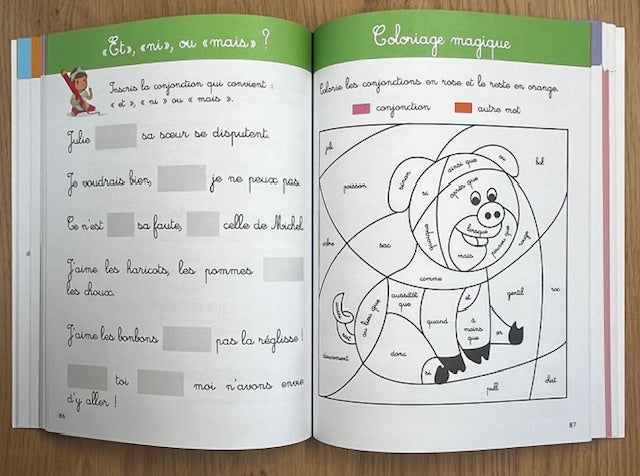 «Et», «ni», ou «mais» ?
Inscris la conjonction qui convient :
« et », « ni » ou « mais ».
Julie sa sœur se disputent.
Je voudrais bien, je ne peux pas.
Ce n'est sa faute, celle de Michel.
J'aime les haricots, les pommes
les choux.
J'aime les bonbons pas la réglisse !
toi moi n'avons envie
d'y aller !
86
Coloriage magique
Colorie les conjonctions en rose et le reste en orange.
conjonction autre mot
joli
ainsi que
ou
bol
poisson
sinon
si
après que
sac
quoique
lorsque
pourvu que
rouge
mais
comme
roc
au lieu que
aussitôt
que
et
gentil
quand
à
moins
que
or
doucement
donc
si
pull
chat
87